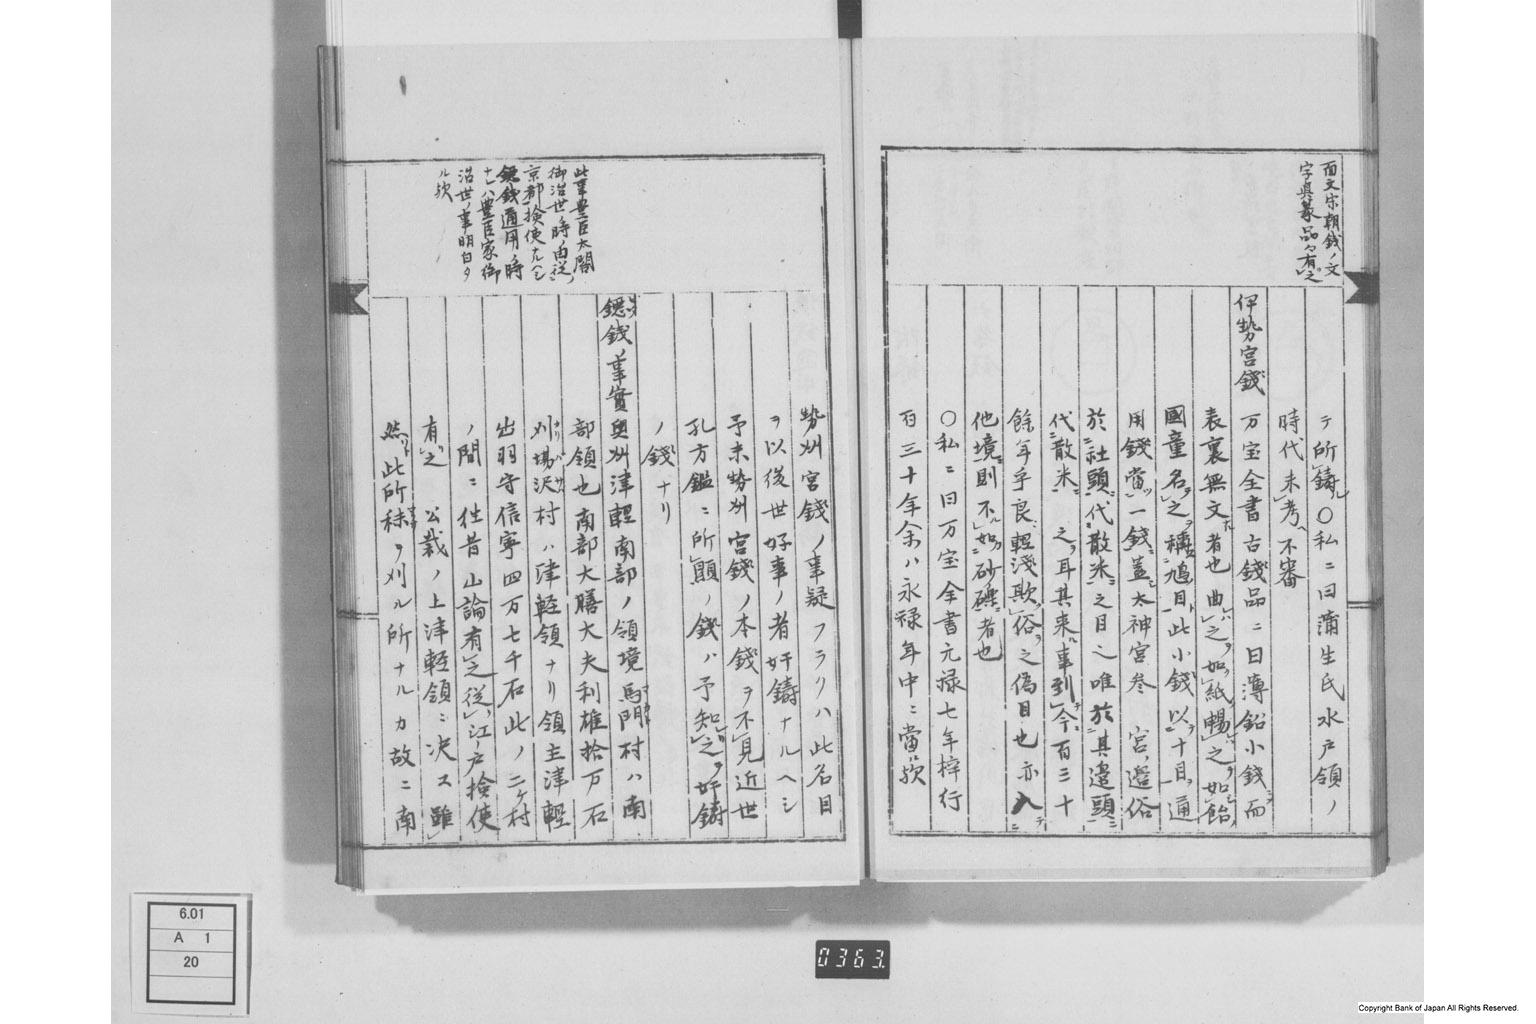 面文宋朝銭ノ文
字真篆品々有之
テ所鋳 〇私ニ曰蒲生氏水戸領ノ
時代未考不審
伊勢宮銭 万宝全書古銭品ニ曰薄鉛小銭而
表裏無文者也曲之如紙暢之如飴
國童名之稱鳩目此小銭以十目通
用銭當一銭蓋太神宮参宮邉俗
於社頭代散米之目也唯於其邉頭
代散米之耳其来事到今百三十
餘年乎良軽浅欺俗之偽目也亦入
他境則不如砂礫者也
〇私ニ曰万宝全書元禄七年梓行
百三十年余ハ永禄年中ニ當ル歟
此事豊臣太閤
御治世ノ時ノ由従
京都検使ナルヘシ
鐚銭通用ノ時
ナレハ豊臣家御
治世ノ事明白タ
ル歟
勢州宮銭ノ事疑フラクハ此名目
ヲ以後世好事ノ者奸鋳ナルヘシ
予未勢州宮銭ノ本銭ヲ不見近世
孔方鑑ニ所顕ノ銭ハ予知之ヲ奸鋳
ノ銭ナリ
鐚銭 事實奥州津軽南部ノ領境馬門村ハ南
部領也南部大膳大夫利雄拾万石
刈場沢村ハ津軽領ナリ領主津軽
出羽守信寧四万七千石此ノ二ケ村
ノ間ニ徃昔山論有之従江戸検使
有之 公裁ノ上津軽領ニ决ス雖
然此所秣ヲ刈ル所ナルカ故ニ南
6.01
A 1
20
0363
Copyright Bank of Japan All Rights Reserved.